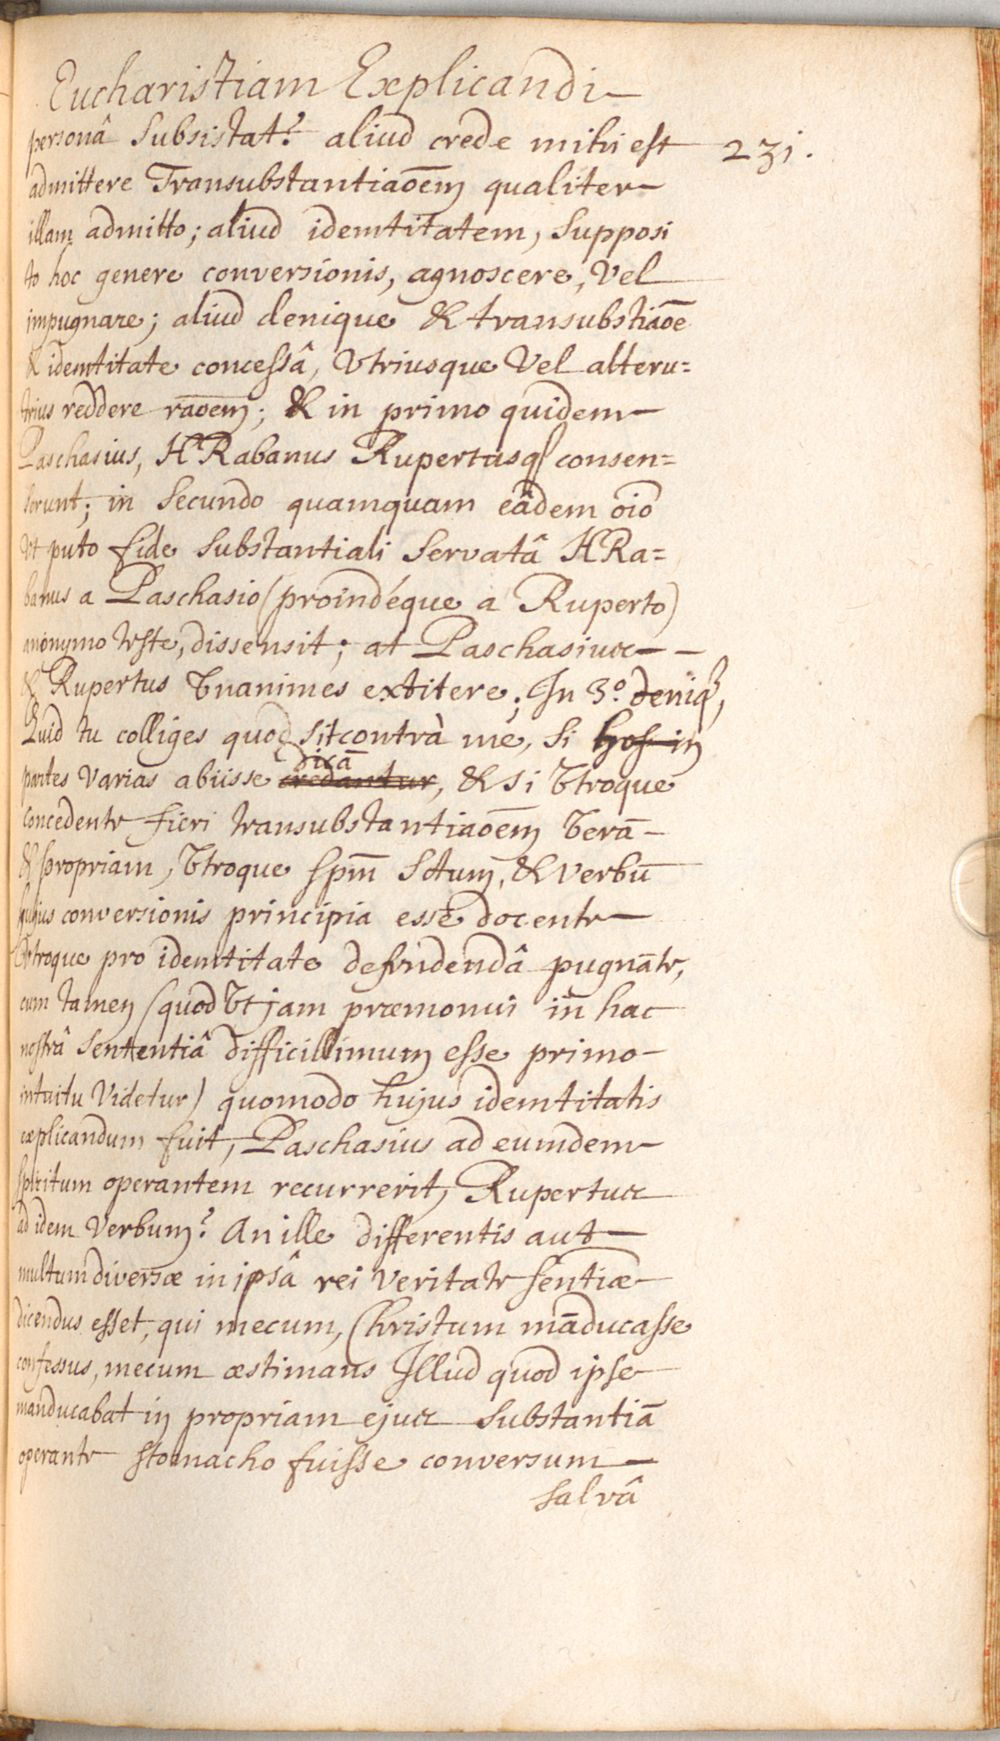 Eucharistiam Explicandi
personâ Subsistat? aliud crede mihi est
231.
admittere Transubstantiaōem qualiter
illam admitto; aliud idemtitatem, Supposi
to hoc genere conversionis, agnoscere, Vel
impugnare; aliud denique & transubstiāoe
& idemtitate concessâ, Vtriusque Vel alteru=
trius reddere rāoem; & in primo quidem
Paschasius, HRabanus Rupertusq consen=
serunt; in Secundo quamquam eâdem oīo
Vt puto fide Substantiali Servatâ HRa=
banus a Paschasio (proindéque a Ruperto)
anonymo teste, dissensit; at Paschasius
& Rupertus Vnanimes extitere; In 3.º deniq,
Quid tu colliges quod sit contrà me, Si hos in
dicā
partes Varias abiisse credantur, & Si Vtroque
concedente fieri transubstantiaōem Verā
& propriam, Vtroque Spm̄ Sctum, & Verbū
hujus conversionis principia esse docente
Vtroque pro idemtitate defendendâ pugnāte,
cum tamen (quod Vt jam præmonui in hac
nostrâ Sententiâ difficillimum esse primo
intuitu Videtur) quomodo hujus idemtitatis
explicandum fuit, Paschasius ad eumdem
Spiritum operantem recurrerit, Rupertus
ad idem Verbum? An ille differentis aut
multum diversæ in ipsâ rei Veritate sentiæ
dicendus esset, qui mecum, Christum māducasse
confessus, mecum æstimans Illud quod ipse
manducabat in propriam ejus Substantiā
operante stomacho fuisse conversum
Salvâ